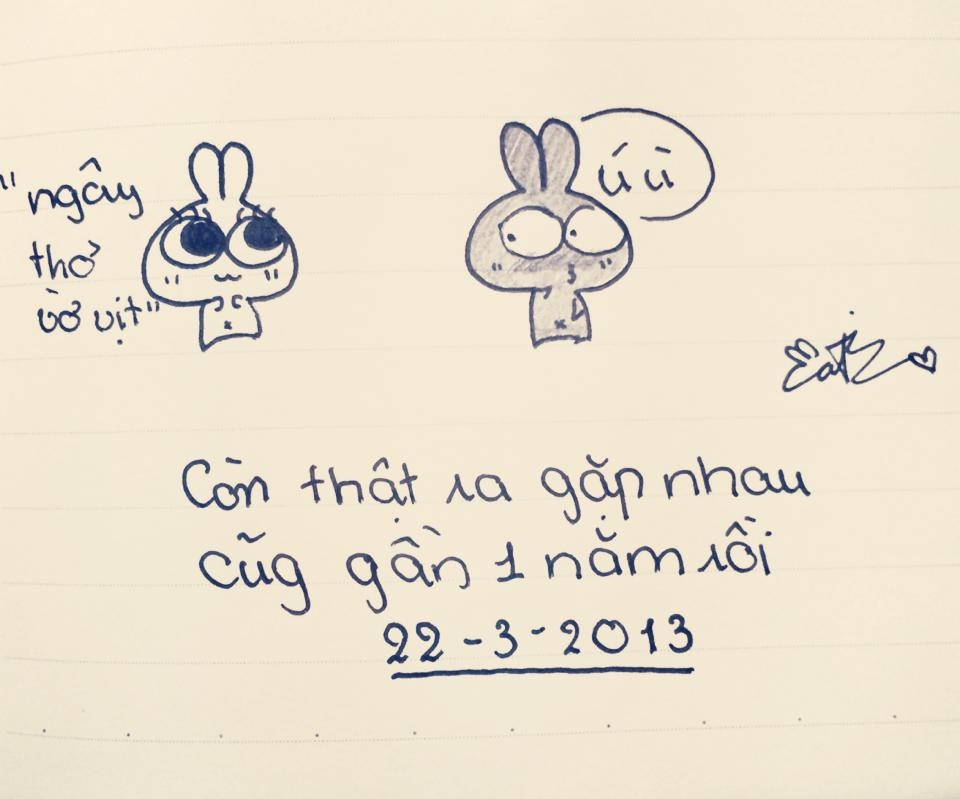 "ngây
thơ
vờ vịt"
ú ù
Eat
Còn thật ra gặp nhau
cũg gần 1 năm rồi
22-3-2013